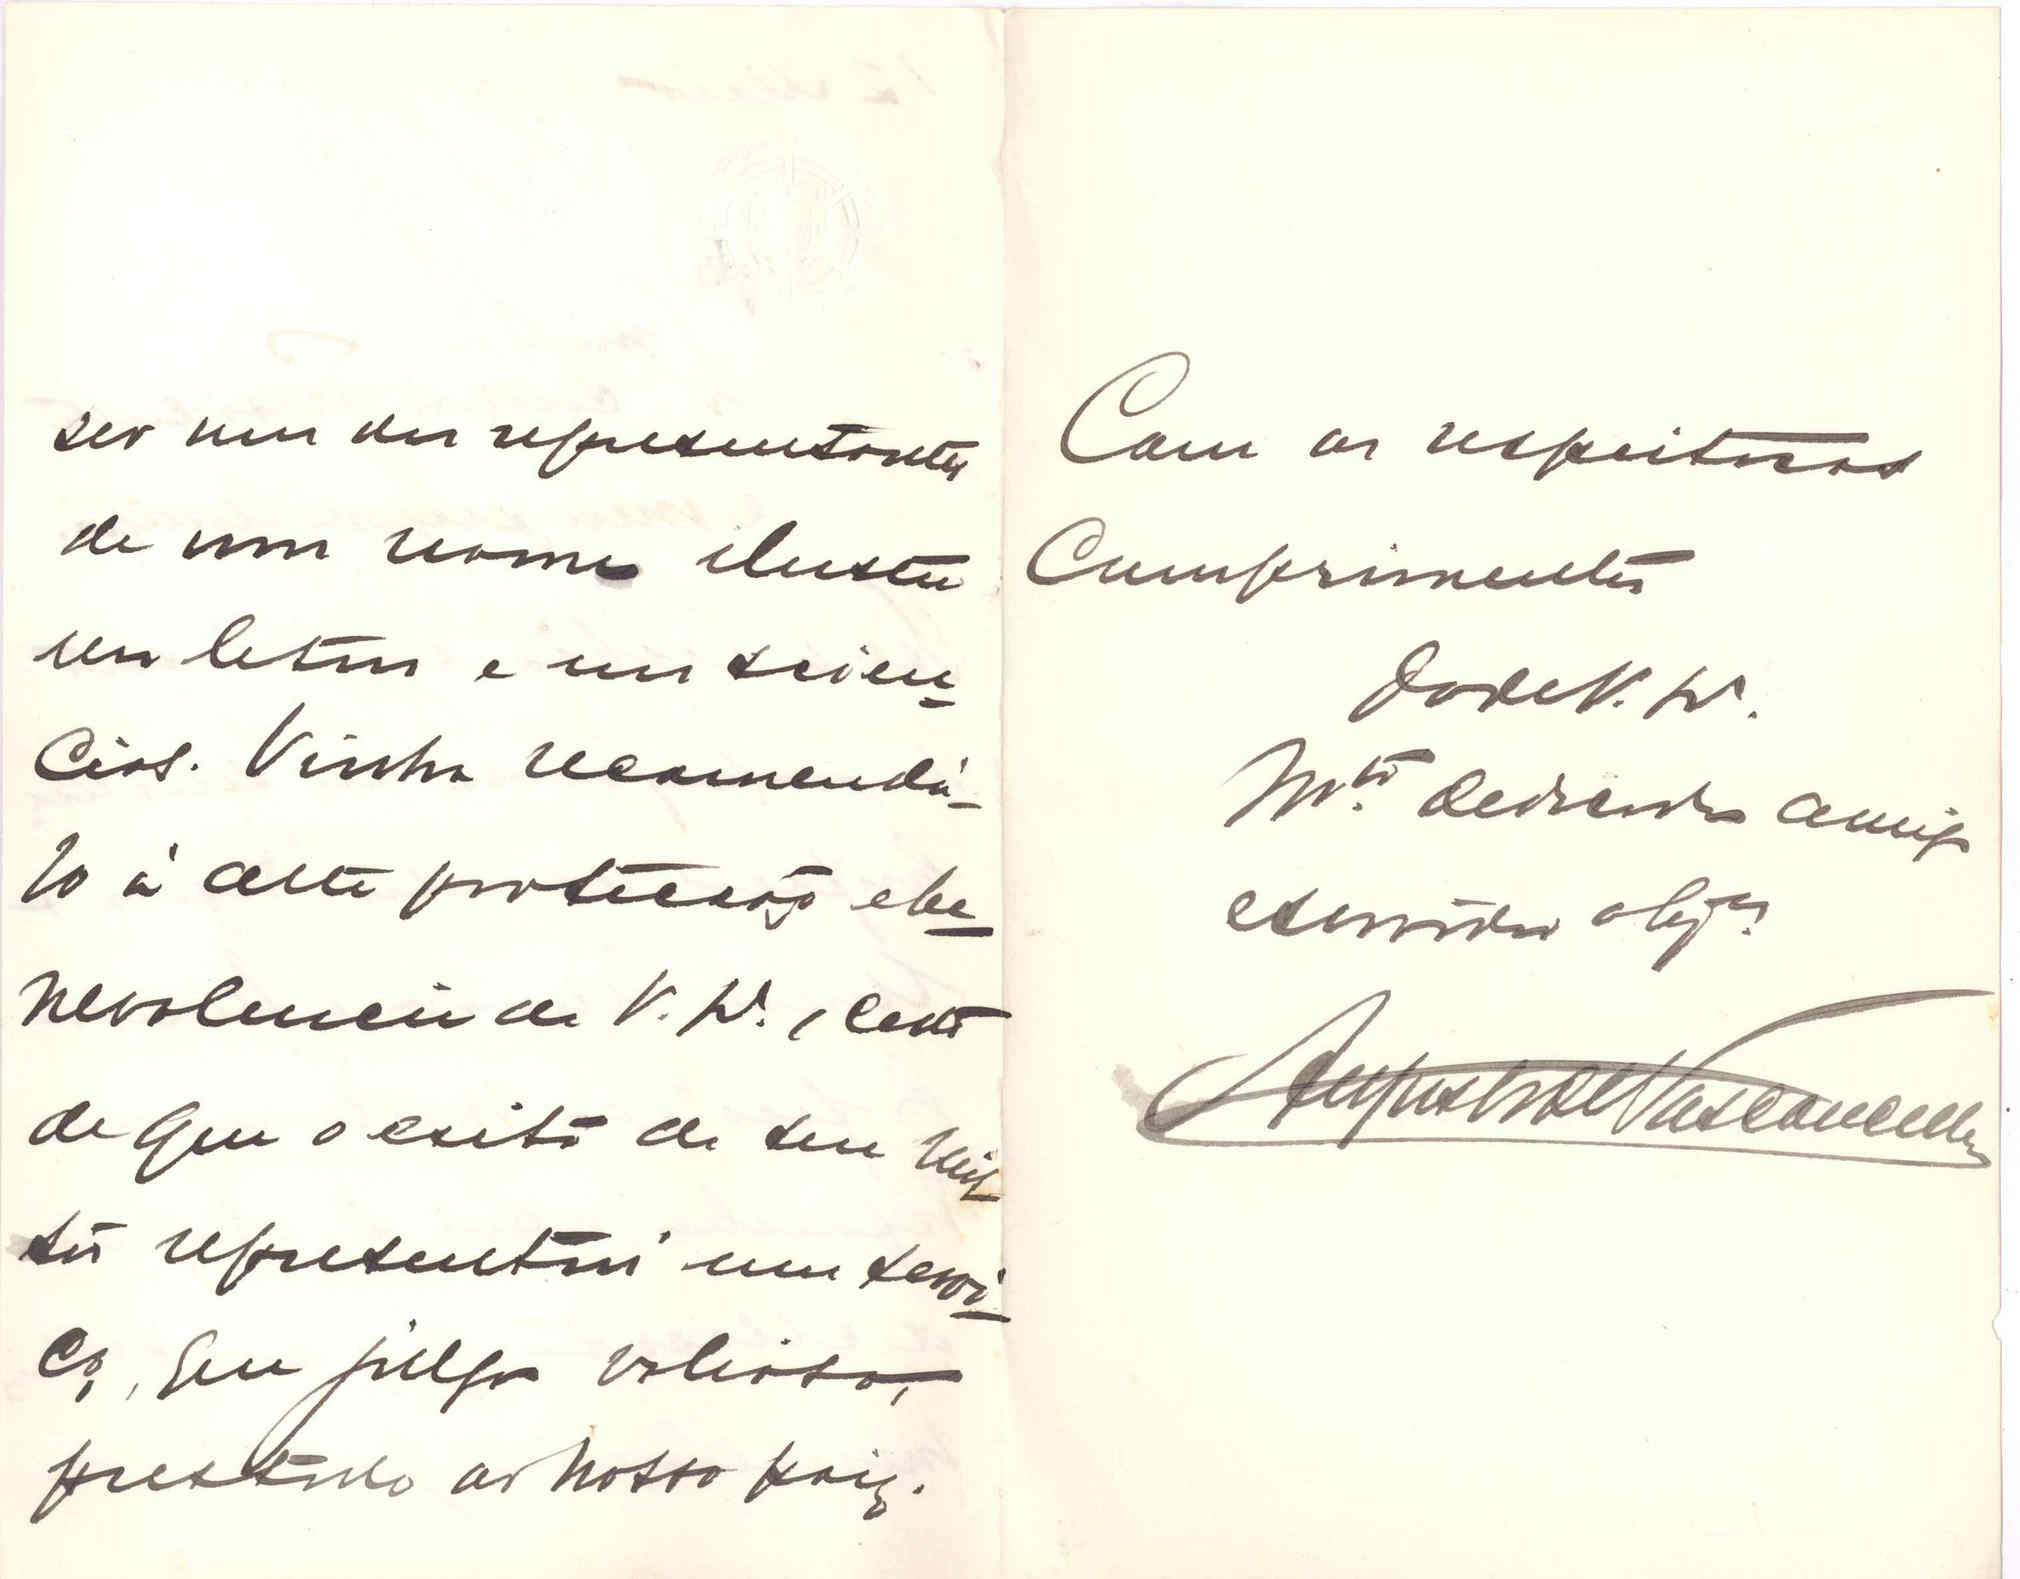 ser um dos representantes
de um nome ilustre
nas letras e nas scien-
cias. Venho recomendá-
lo á alta protecção e be-
nevolencia de V. Exª., certo
de que o exito da sua mis-
são representará um servi-
ço, que julgo valioso,
prestado ao nosso paiz.
Com os respeitosos
Cumprimentos
De V. Exª.
Mtº. dedicado amigo
e servidor obgdº.
Augusto de Vasconcellos